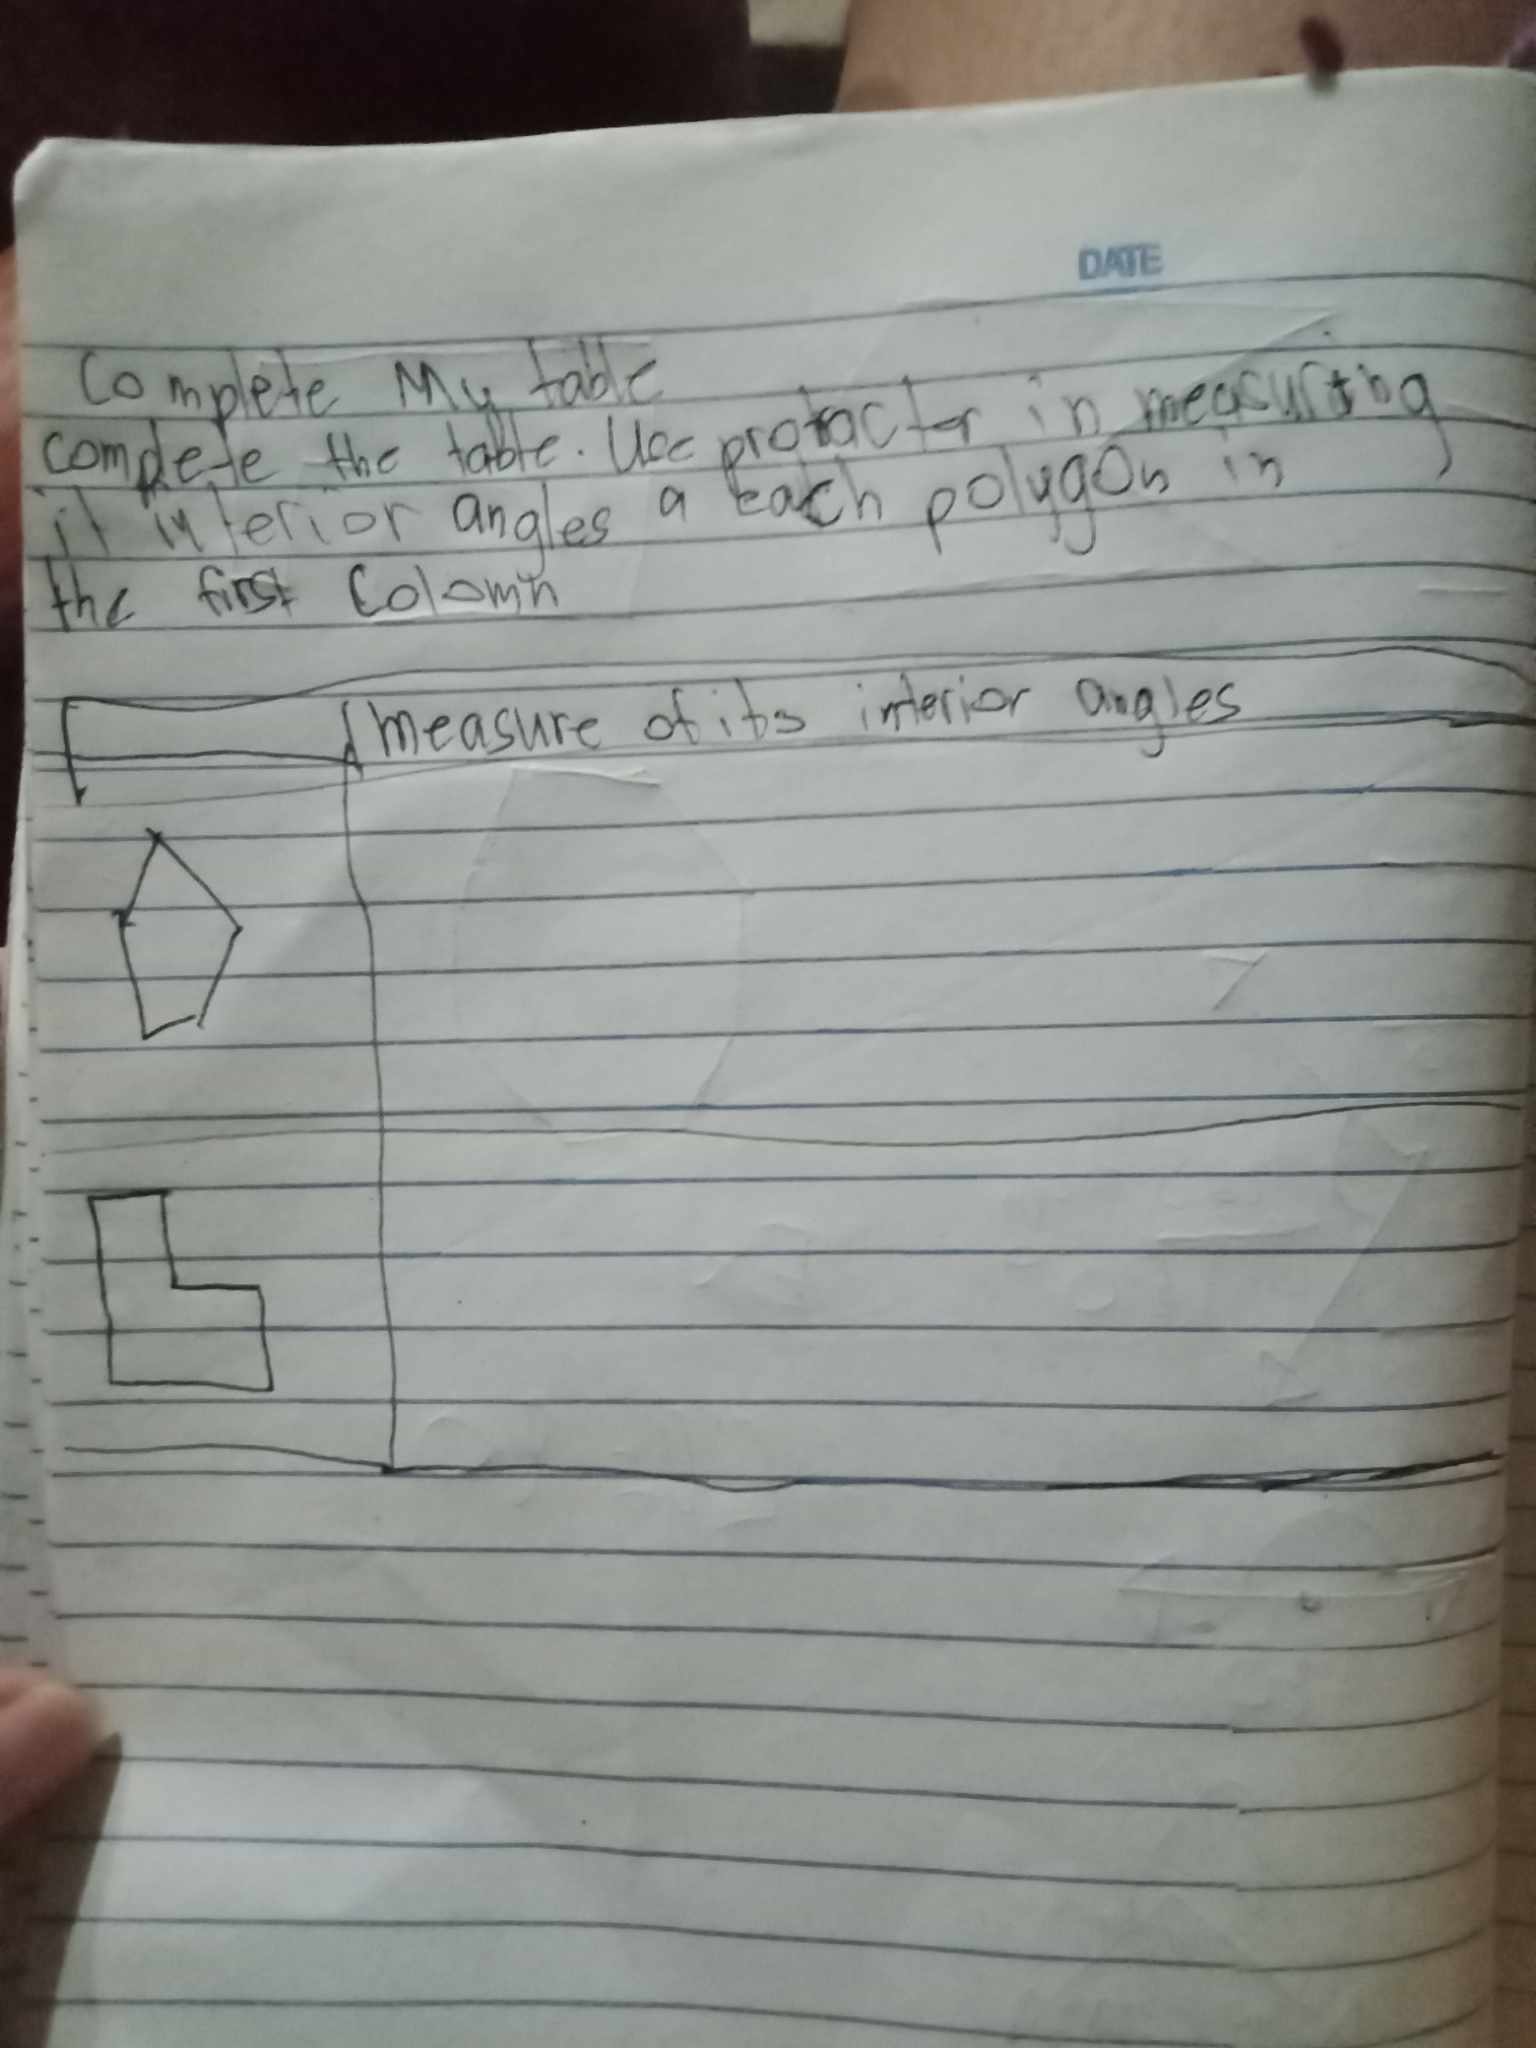 DATE
Complete My table
complete the table. Use protacter in measurting
it interior angles a each polygon in
the first Colomn
measure of its interior angles